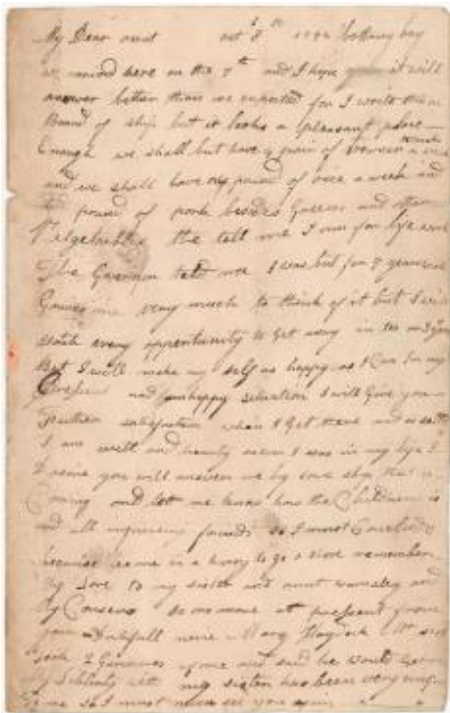 My Dear aunt oct 8th 1792 bottany bay
we arived here on the 7th and I hope it will
answer better than we expected for I write this on
Board of ship but it looks a pleasant place
Enough we shall but have 4 pair of trowsers a
and we shall have pound of rice a week and
pound of pork besides Greens and other
Vegetables the tell me I am for life
The Governor teld me I was but for 7 years
Greves me very much to think of it but I will
watch every oppertunity to Get away in too or 3
But I will make my self as happy as I Can In my
Pressent and unhappy situation I will Give you
Further satisfaction when I Get there and is
I am well and hearty as ever I was in my life I
desire you will answer me by some ship that is
Coming and let me know how the Children is
and all inquireing friends so I must Conclude
because we are in a hurry to go a shore remember
My Love to my sister and aunt wamsley and
My Cousens so no more at pressent from
your Dutifull neice Mary Haydock Mr
took 2 Gineness of me and said he would Get
My Libbaty my sister has been very
to me so I must never see you again